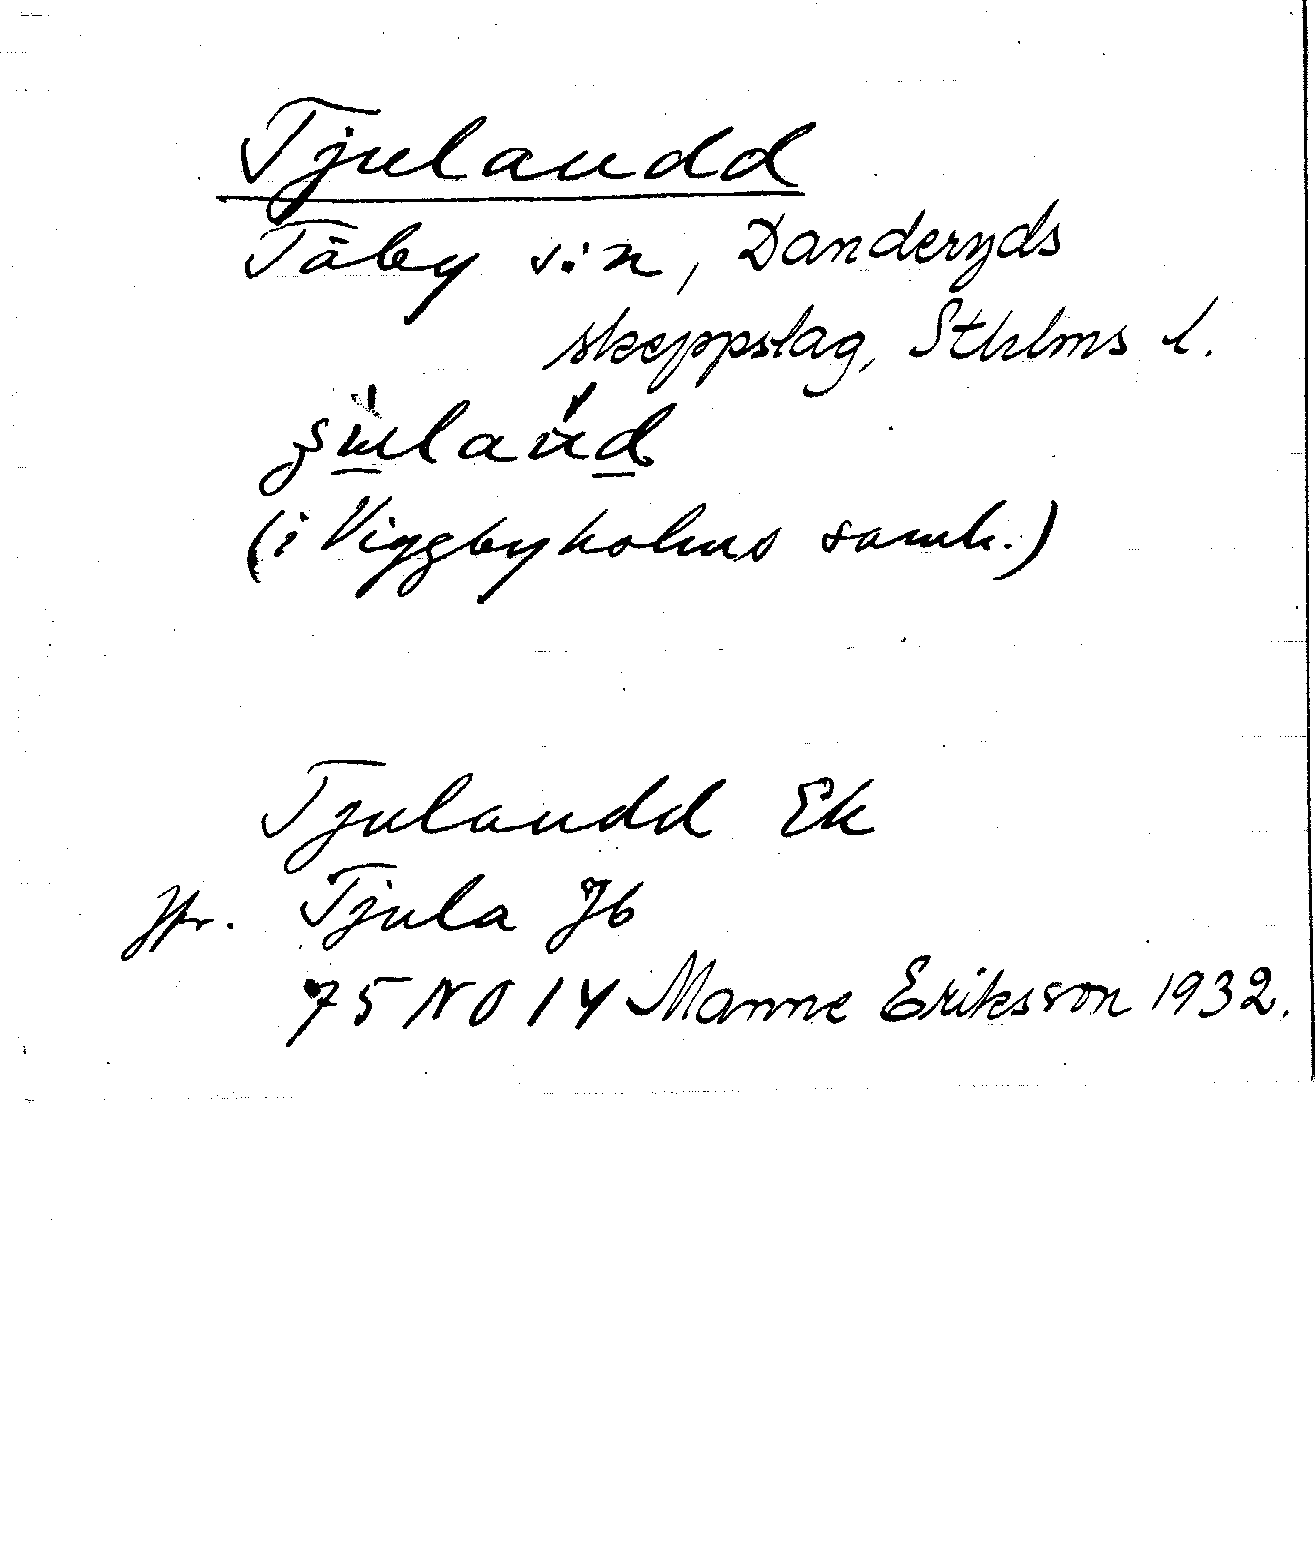 Tjulandd
Täby s:n, Danderyds
skeppslag, Sthlms l.
(i Viggbyholms samh.)
Tjulandd Ek
Jfr. Tjula Jb
75 NO 14 Manne Eriksson 1932.